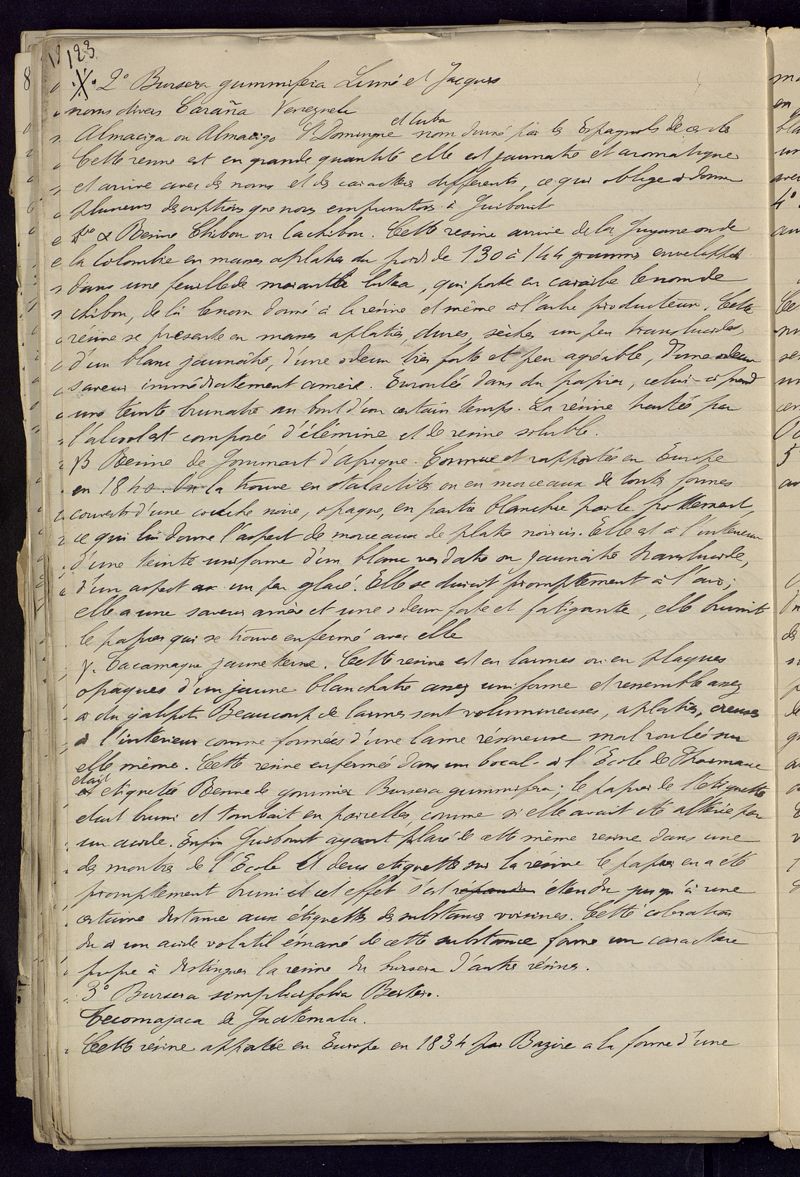 123
X. 2° Bursera gummifera Linné et Jacquin
noms divers Caraña Venezuela
et Cuba
Almaciga ou Almacigo St Domingue nom donné par les Espagnols de ces
Cette résine est en grande quantité elle est jaunatre et aromatique
et arrive avec des noms et des caractères différents, ce qui oblige à donner
plusieurs descriptions que nous empruntons à Guibourt
α Résine Chibou ou Cachibou. Cette résine arrive de la Guyane ou de
la Colombie en masses aplaties du poids de 130 à 144 grammes enveloppées
dans une feuille de maranta lutea, qui porte en caraïbe le nom de
chibou, de là le nom donné à la résine et même à l'arbre producteur. Cette
résine se présente en masses aplaties, dures, sèches un peu translucides
d'un blanc jaunâtre, d'une odeur très forte et peu agréable, d'une odeur
saveur immédiatement amère. Enroulée dans du papier, celui-ci prend
une teinte brunatre au bout d'un certain temps. La résine traitée par
l'alcool est composée d'élémine et de résine soluble.
β Résine de Gommart d'Afrique. Connue et rapportée en Europe
en 1840. On la trouve en stalactites ou en morceaux de toutes formes
couverts d'une couche noire, opaque, en partie blanchie par le frottement,
ce qui lui donne l'aspect de morceaux de platre noircis. Elle est à l'intérieur
d'une teinte uniforme d'un blanc verdatre ou jaunâtre translucide,
d'un aspect un peu glacé. Elle se durcit promptement à l'air;
elle a une saveur amère et une odeur forte et fatigante, elle brunit
le papier qui se trouve enfermé avec elle
γ. Tacamaque jaune terne. Cette résine est en larmes ou en plaques
opaques d'un jaune blanchatre assez uniforme et ressemble assez
à du galipot. Beaucoup de larmes sont volumineuses, aplaties, creuses
à l'intérieur comme formées d'une lame résineuse mal roulée sur
elle même. Cette résine enfermée dans un bocal à l'Ecole de Pharmacie
était
et étiquetée Résine de gommier Bursera gummifera; le papier de l'étiquette
était bruni et tombait en parcelles, comme si elle avait été altérée par
un acide. Enfin Guibourt ayant placé de cette même résine dans une
des montres de l'Ecole et deux étiquettes sur la résine le papier en a été
promptement bruni et cet effet s'est étendu jusqu'à une
certaine distance aux étiquettes des substances voisines. Cette coloration
du à un acide volatil émané de cette substance forme un caractère
propre à distinguer la résine du bursera d'autre résines.
3° Bursera simplicifolia Bertero.
Tecomajaca de Guatemala.
Cette résine apportée en Europe en 1834 par Bazire a la forme d'une